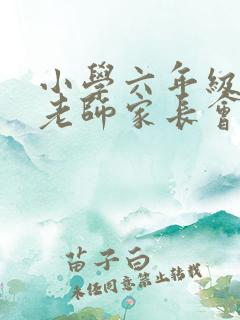 小學六年級
老師家長會
苗子白
未經同意禁止轉載